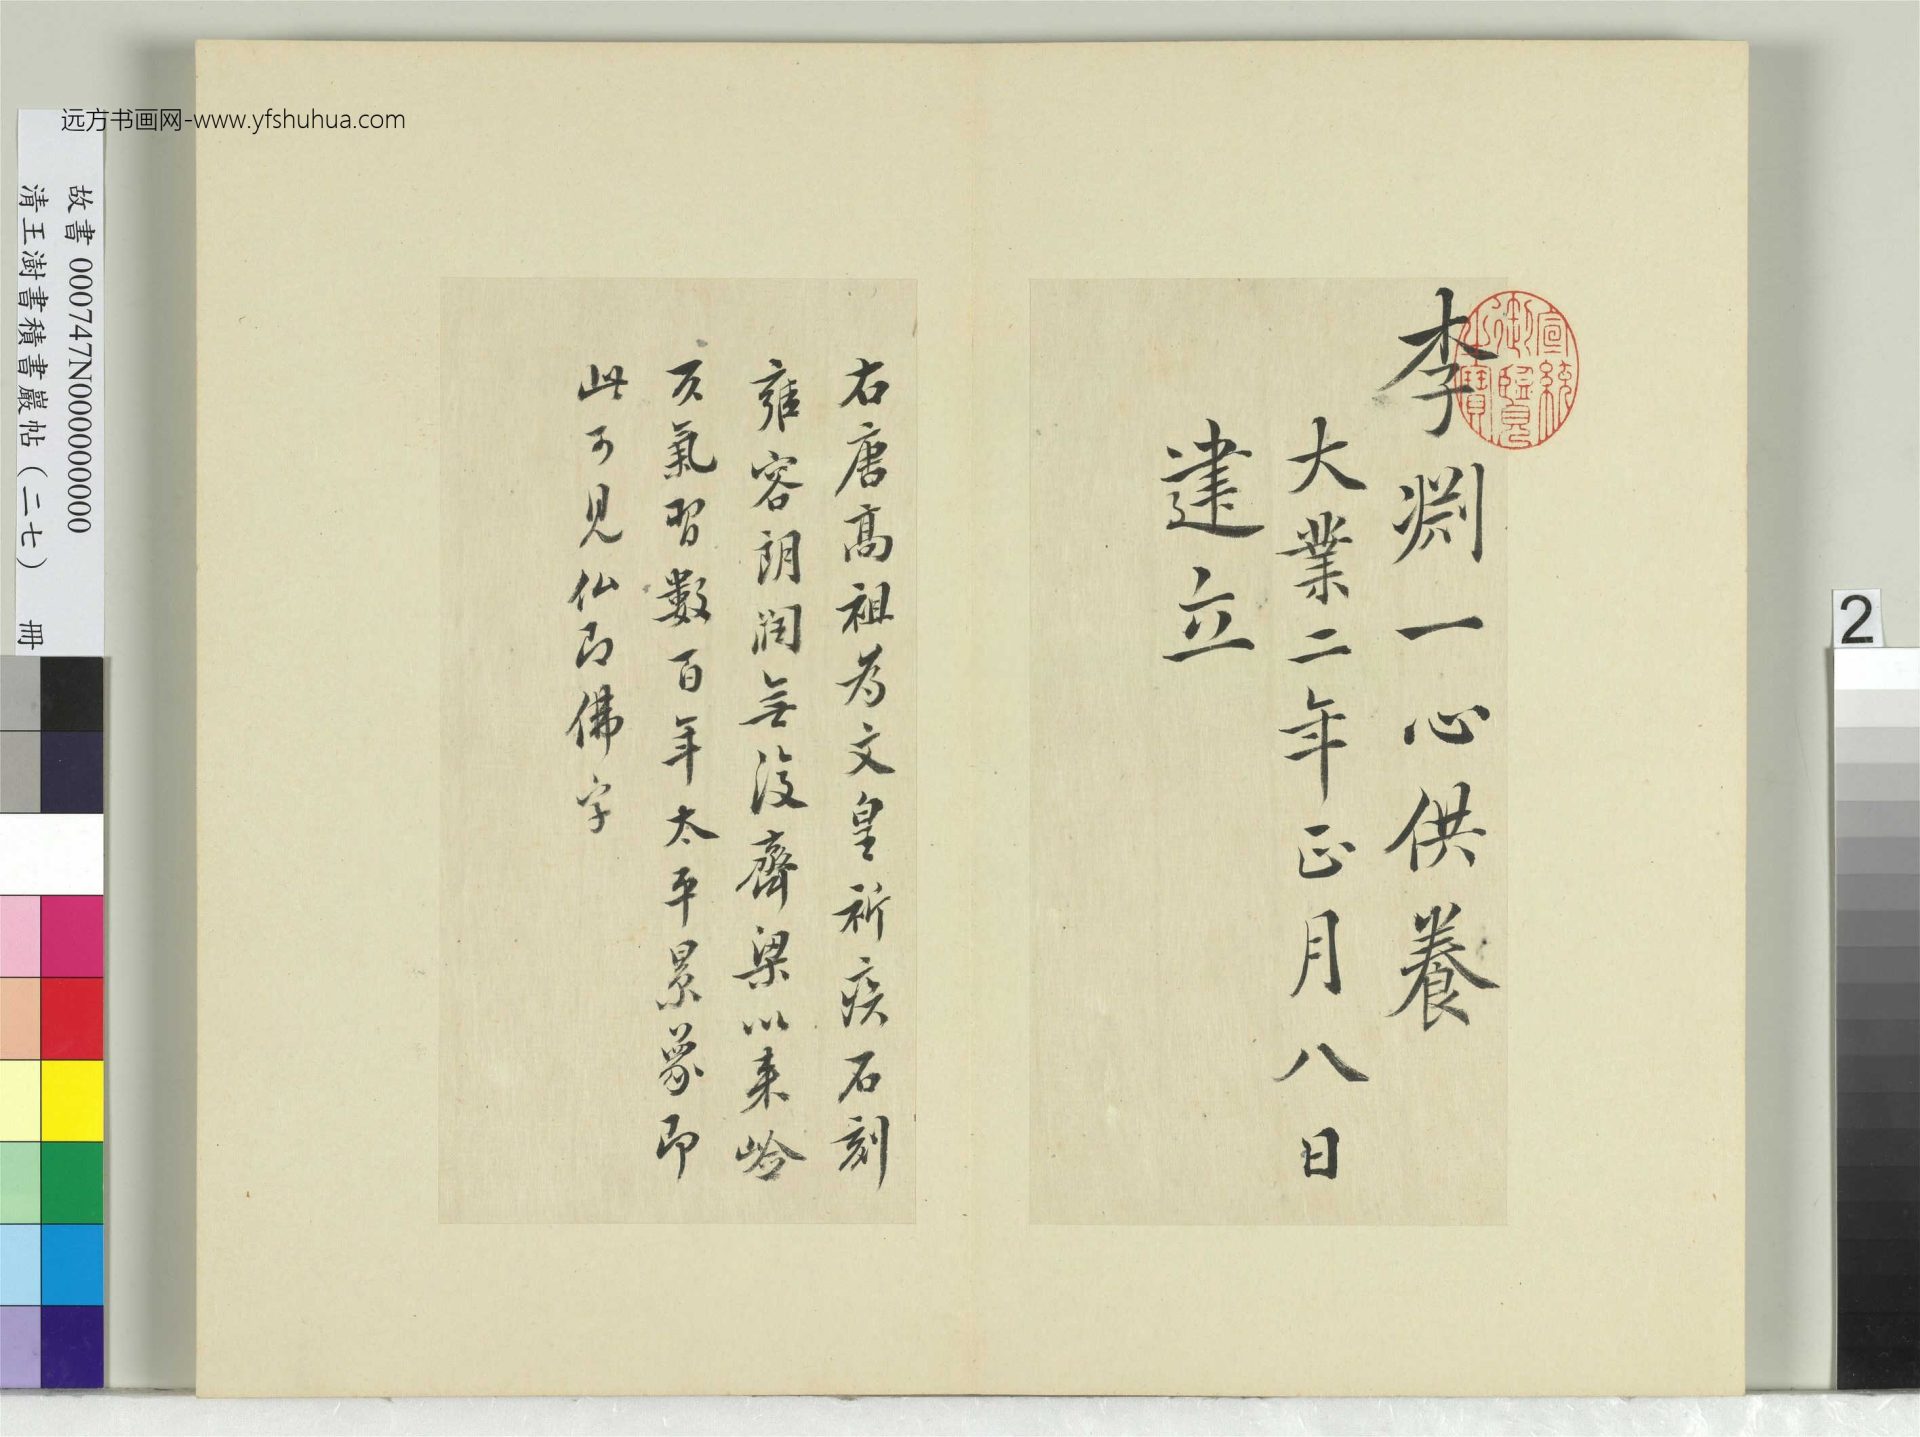 远方书画网-www.yfshuhua.com
故書 000747N000000000
清王澍書積書巖帖（二七） 冊
2
宣統
御覽
之寶
李淵一心供養
大業二年正月八日
建立
右唐高祖為文皇祈疾石刻
雍容朗潤無復齊梁以來
交氣習數百年太平景象即
此可見仏即佛字